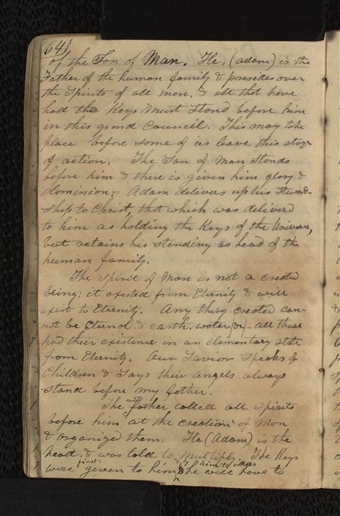 64)
of the Son of Man. He, (adam) is the
Father of the human family & presides over
the Spirits of all men, & all that have
had the Keys must Stand before him
in this grand Council. This may take
place before some of us leave this stage
of action. The Son of Man Stands
before him & there is given him glory &
dominion; Adam delivers up his Steward-
Ship to Christ, that which was delivered
to him as holding the Keys of the Universe,
but retains his standing as head of the
human family.
The Spirit of Man is not a created
being; it existed from Eternity & will
exist to Eternity. Any thing created can-
not be Eternal. & earth, water &c— all these
had their existence in an elementary state
from Eternity. Our Savior Speaks of
Children & Says their angels always
stand before my father.
The Father called all spirits
before him at the creation of Man
& organized them. He (Adam) is the
head, & was told to multiply. The Keys
were first given to him, & by him to others
he will have to